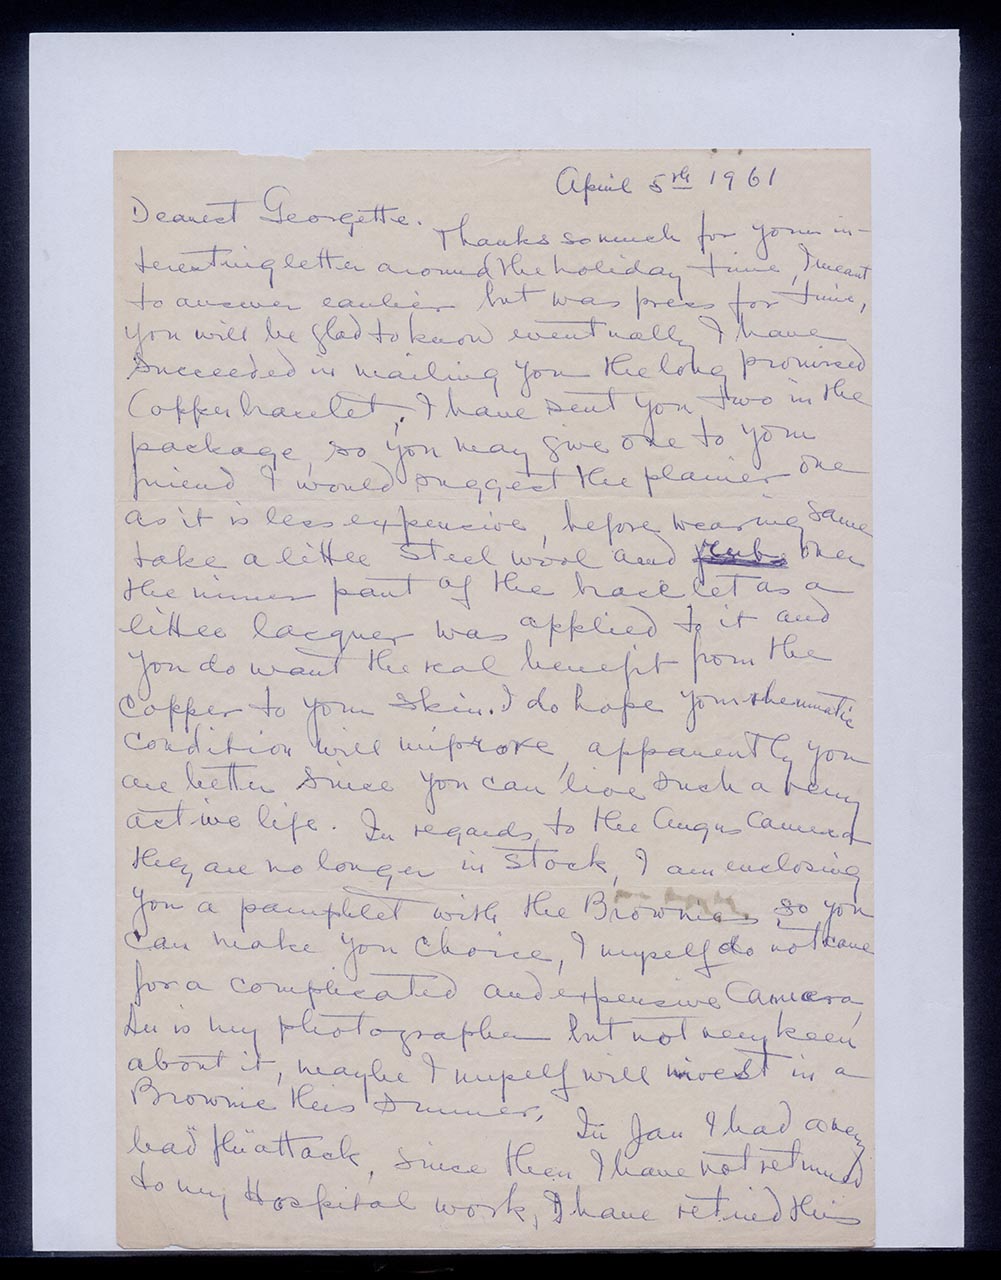 April 5th 1961
Dearest Georgette.
Thanks so much for your in-
teresting letter around the holiday time, I meant
to answer earlier but was press for time,
you will be glad to know eventually I have
succeeded in mailing you the long promised
Copper bracelet, I have sent you two in the
package, so you may give one to your
friend I would suggest the plainer one
as it is less expensive, before wearing same
take a little steel wool and rub over
the inner part of the bracelet as a
little lacquer was applied to it and
you do want the real benefit from the
copper to your skin. I do hope your rheumatic
condition will improve, apparently you
are better since you can live such a very
active life. In regards to the Angus Camera
they are no longer in stock, I am enclosing
you a pamphlet with the Brownies, so you
can make you choice, I myself do not care
for a complicated and expensive Camera,
Lu is my photographer but not very keen
about it, maybe I myself will invest in a
Brownie this summer. In Jan I had a very
bad flu attack, since then I have not returned
to my Hospital work, I have retired this